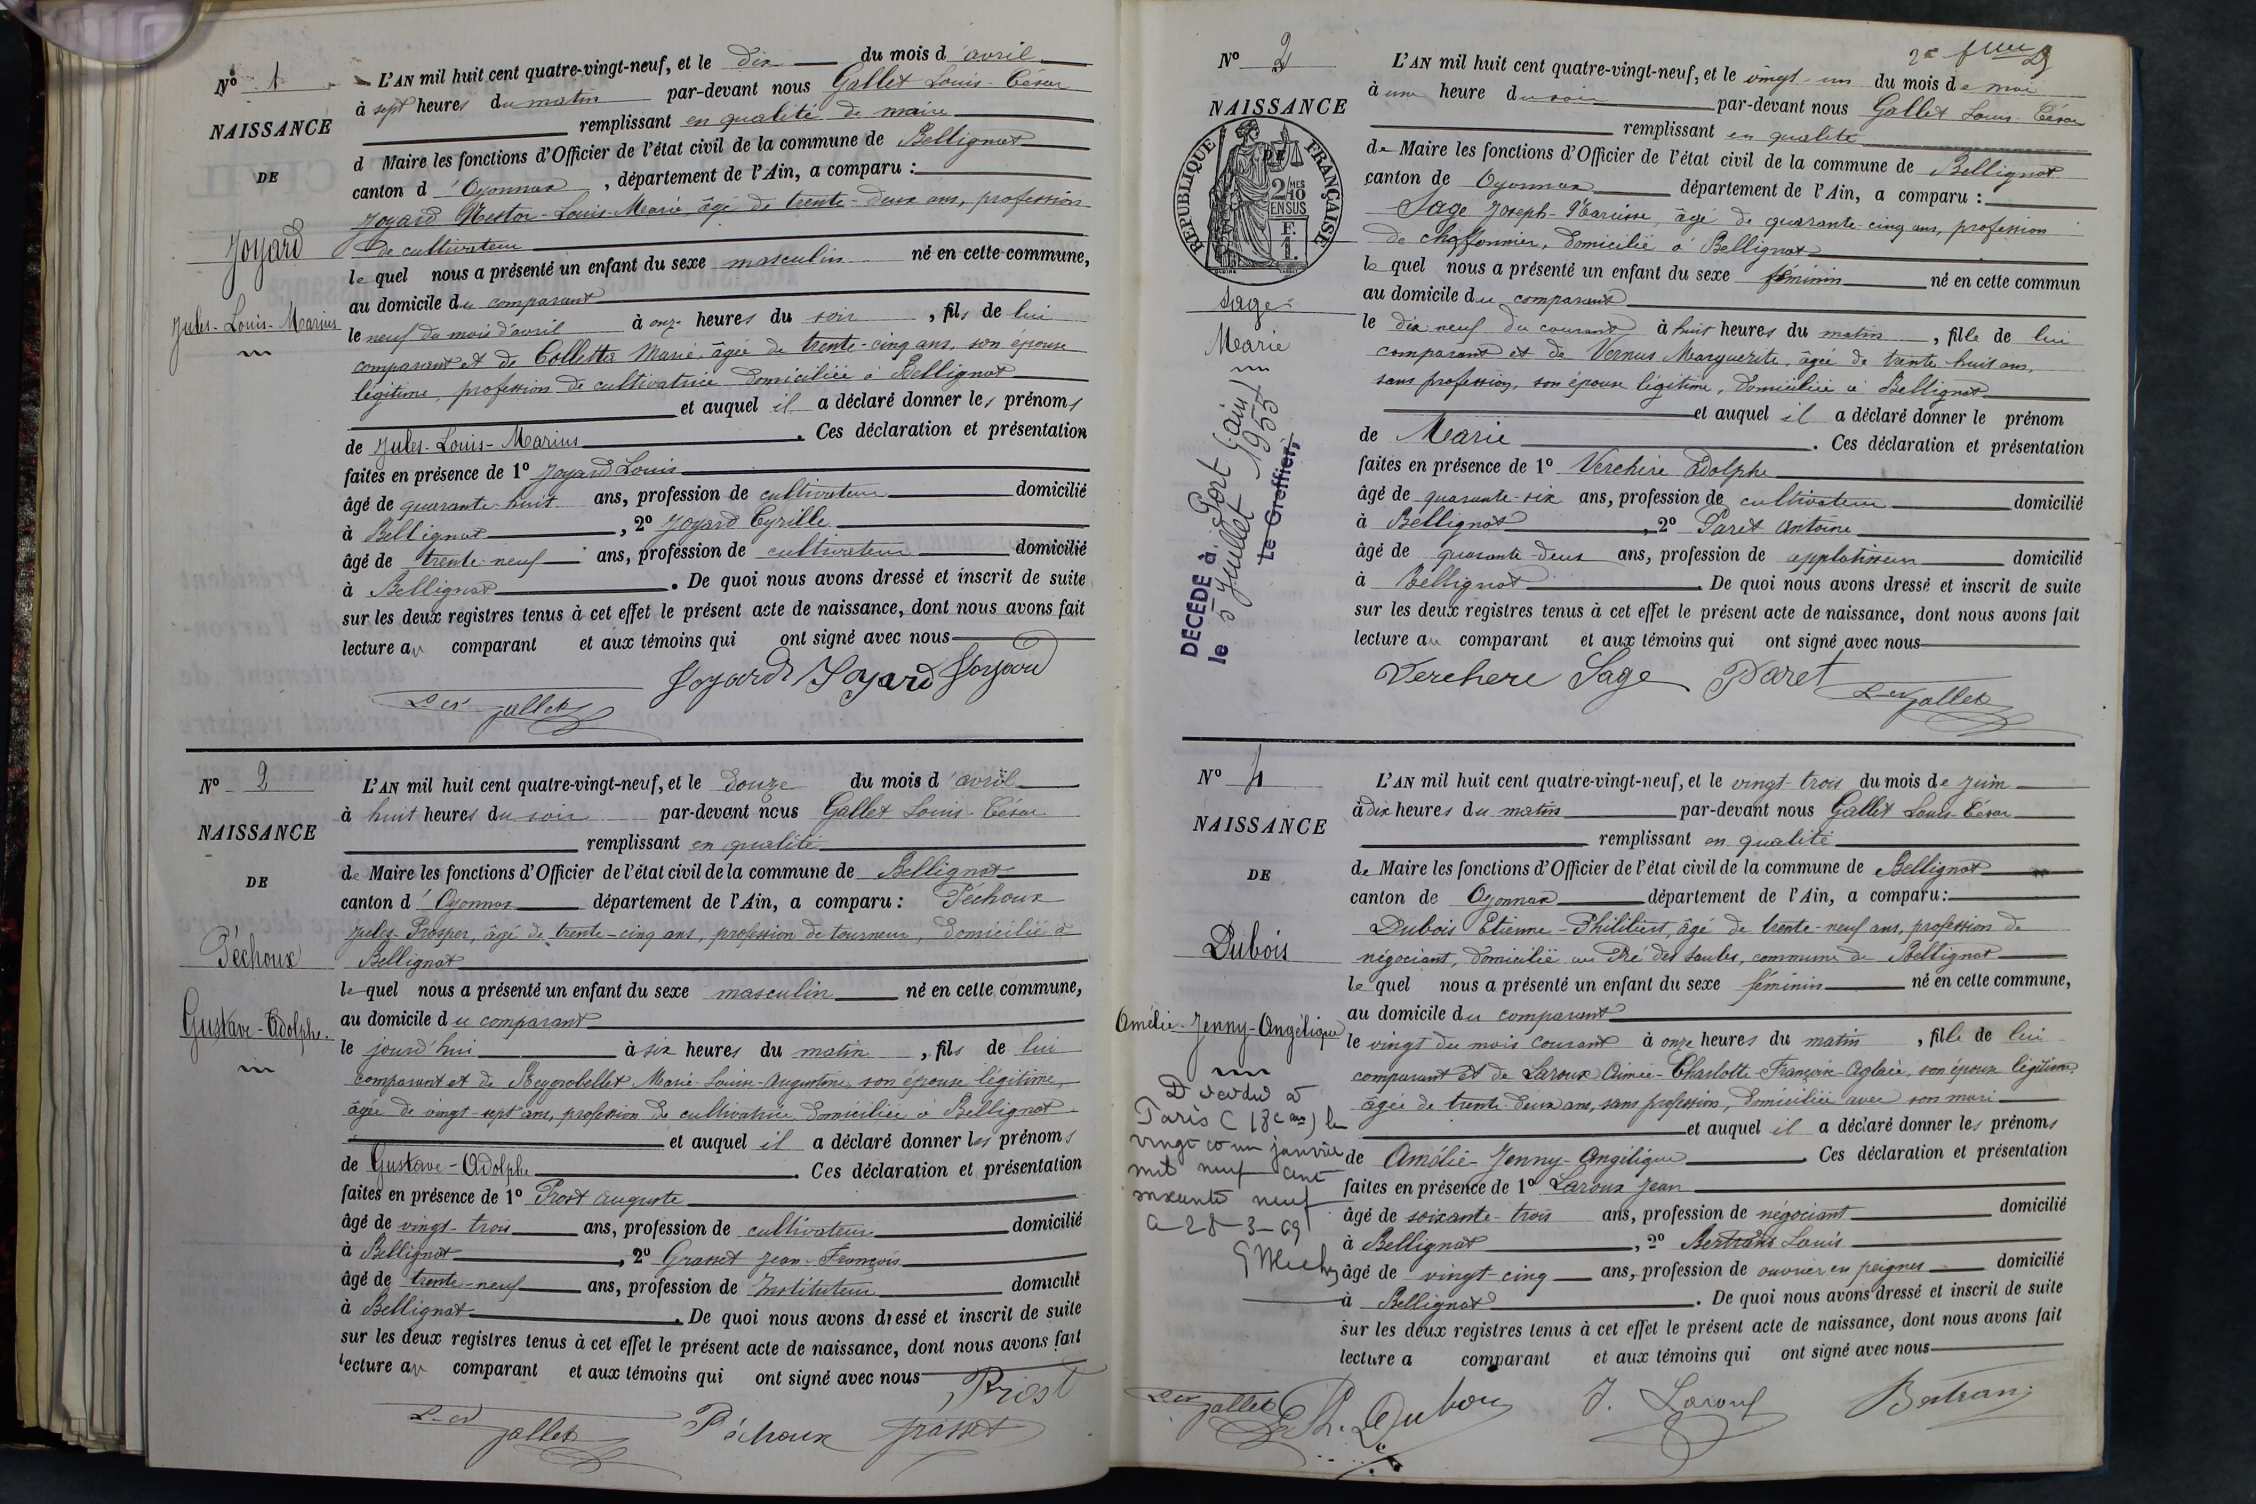 Nº 1
NAISSANCE
DE
Joyard
Jules-Louis-Marius
L'AN mil huit cent quatre-vingt-neuf, et le dix du mois d'avril
à sept heures du matin par-devant nous Gallet Louis-César
remplissant en qualité de maire
d Maire les fonctions d'Officier de l'état civil de la commune de Bellignat
canton d'Oyonnax, département de l'Ain, a comparu :
Joyard Nestor-Louis-Marie âgé de trente-deux ans, profession
de cultivateur
lequel nous a présenté un enfant du sexe masculin né en cette commune,
au domicile du comparant
le neuf du mois d'avril à onze heures du soir, fils de lui
comparant et de Colletta Marie âgée de trente-cinq ans, son épouse
légitime, profession de cultivatrice domiciliée à Bellignat
et auquel il a déclaré donner les prénoms
de Jules-Louis-Marius. Ces déclaration et présentation
faites en présence de 1º Joyard Louis
âgé de quarante-huit ans, profession de cultivateur domicilié
à Bellignat, 2º Joyard Cyrille
âgé de trente-neuf ans, profession de cultivateur domicilié
à Bellignat. De quoi nous avons dressé et inscrit de suite
sur les deux registres tenus à cet effet le présent acte de naissance, dont nous avons fait
lecture au comparant et aux témoins qui ont signé avec nous
Joyard Joyard Joyard
Gallet
Nº 2
NAISSANCE
DE
Péchoux
Gustave-Adolphe.
L'AN mil huit cent quatre-vingt-neuf, et le douze du mois d'avril
à huit heures du soir par-devant nous Gallet Louis-César
remplissant en qualité
de Maire les fonctions d'Officier de l'état civil de la commune de Bellignat
canton d'Oyonnax département de l'Ain, a comparu : Péchoux
Jules-Prosper, âgé de trente-cinq ans, profession de tourneur, domicilié à
Bellignat
lequel nous a présenté un enfant du sexe masculin né en cette commune,
au domicile du comparant
le jourd'hui à six heures du matin, fils de lui
comparant et de Reygrobellet Marie-Louise-Augustine son épouse légitime,
âgée de vingt-sept ans, profession de cultivatrice domiciliée à Bellignat
et auquel il a déclaré donner les prénoms
de Gustave-Adolphe. Ces déclaration et présentation
faites en présence de 1º Prost Auguste
âgé de vingt-trois ans, profession de cultivateur domicilié
à Bellignat, 2º Grasset Jean-François
âgé de trente-neuf ans, profession de Instituteur domicilié
à Bellignat. De quoi nous avons dressé et inscrit de suite
sur les deux registres tenus à cet effet le présent acte de naissance, dont nous avons fait
lecture au comparant et aux témoins qui ont signé avec nous
Prost
Gallet Péchoux Grasset
Nº 3
NAISSANCE
DE
RÉPUBLIQUE FRANÇAISE
2/10 MES
EN SUS
F.
1.
Sage
Marie
DÉCÉDÉ à Port (ain)
le 5 Juillet 1955
Le Greffier,
2e
L'AN mil huit cent quatre-vingt-neuf, et le vingt-un du mois de mai
à une heure du soir par-devant nous Gallet Louis-César
remplissant en qualité
de Maire les fonctions d'Officier de l'état civil de la commune de Bellignat
canton de Oyonnax département de l'Ain, a comparu :
Sage Joseph-Narcisse, âgé de quarante-cinq ans, profession
de chiffonnier, domicilié à Bellignat
lequel nous a présenté un enfant du sexe féminin né en cette commun
au domicile du comparant
le dix-neuf du courant à huit heures du matin, fille de lui
comparant et de Vernus Marguerite, âgée de trente-huit ans,
sans profession, son épouse légitime, domiciliée à Bellignat
et auquel il a déclaré donner le prénom
de Marie. Ces déclaration et présentation
faites en présence de 1º Verchère Adolphe
âgé de quarante-six ans, profession de cultivateur domicilié
à Bellignat, 2º Paret Antoine
âgé de quarante-deux ans, profession de applatisseur domicilié
à Bellignat. De quoi nous avons dressé et inscrit de suite
sur les deux registres tenus à cet effet le présent acte de naissance, dont nous avons fait
lecture au comparant et aux témoins qui ont signé avec nous
Verchere Sage Paret Gallet
Nº 4
NAISSANCE
DE
Dubois
Amélie-Jenny-Angélique
Décédée à
Paris (18e arr) le
vingt et un janvier
mil neuf cent
soixante neuf
a-28-3-69
L'AN mil huit cent quatre-vingt-neuf, et le vingt-trois du mois de juin
à dix heures du matin par-devant nous Gallet Louis-César
remplissant en qualité
de Maire les fonctions d'Officier de l'état civil de la commune de Bellignat
canton de Oyonnax département de l'Ain, a comparu :
Dubois Etienne-Philibert, âgé de trente-neuf ans, profession de
négociant, domicilié au Pré des Saules, commune de Bellignat
lequel nous a présenté un enfant du sexe féminin né en cette commune,
au domicile du comparant
le vingt du mois courant à onze heures du matin, fille de lui
comparant et de Laroux Aimée-Charlotte-Françoise-Aglaée, son épouse légitime,
âgée de trente-deux ans, sans profession, domiciliée avec son mari
et auquel il a déclaré donner les prénoms
de Amélie-Jenny-Angélique. Ces déclaration et présentation
faites en présence de 1º Laroux Jean
âgé de soixante-trois ans, profession de négociant domicilié
à Bellignat, 2º Bertrand Louis
âgé de vingt-cinq ans, profession de ouvrier en peignes domicilié
à Bellignat. De quoi nous avons dressé et inscrit de suite
sur les deux registres tenus à cet effet le présent acte de naissance, dont nous avons fait
lecture a comparant et aux témoins qui ont signé avec nous
Gallet E. Ph. Dubois J. Laroux Bertrand